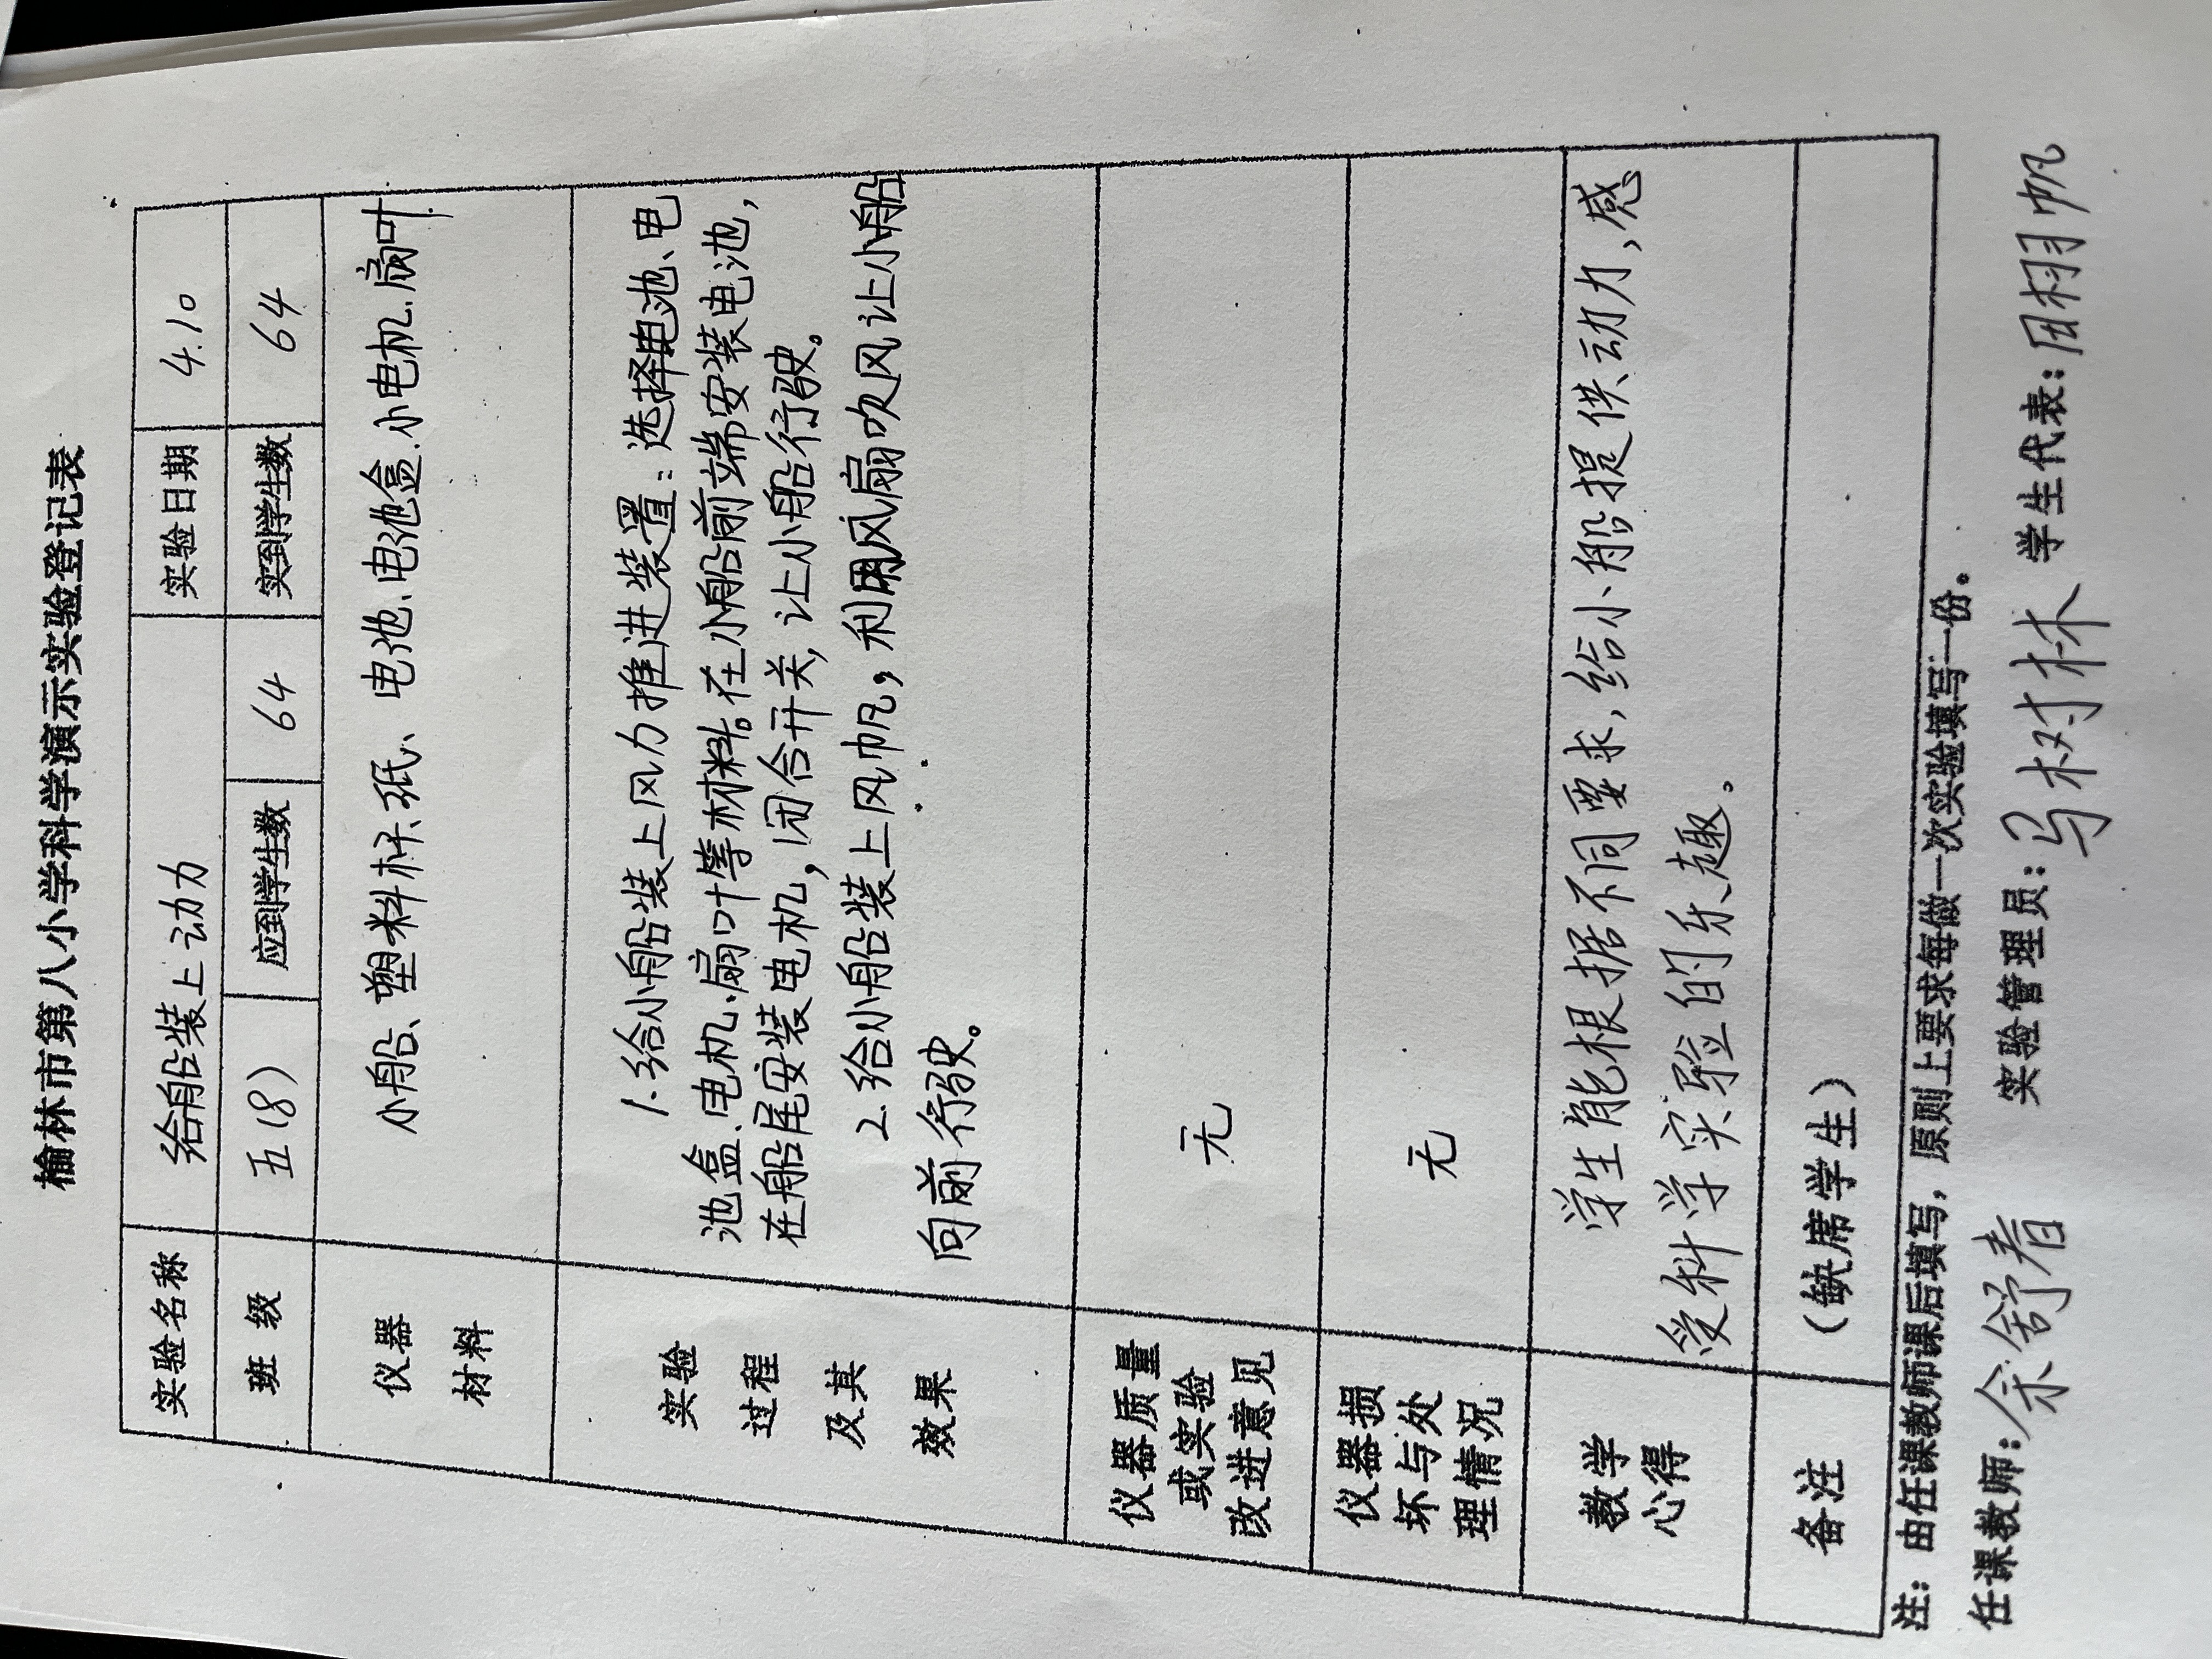 榆林市第八小学科学演示实验登记表
实验名称 给船装上动力 实验日期 4.10
班 级 五(8) 应到学生数 64 实到学生数 64
仪器
材料
小船、塑料杯、纸、电池、电池盒、小电机、扇叶
实验
过程
及其
效果
1.给小船装上风力推进装置:选择电池、电
池盒、电机、扇叶等材料。在小船前端安装电池,
在船尾安装电机,闭合开关,让小船行驶。
2.给小船装上风帆,利用风扇吹风让小船
向前行驶。
仪器质量
或实验
改进意见
无
仪器损
坏与处
理情况
无
教学
心得
学生能根据不同要求,给小船提供动力,感
受科学实验的乐趣。
备注 (缺席学生)
注:由任课教师课后填写,原则上要求每做一次实验填写一份。
任课教师:余舒春 实验管理员:马树林 学生代表:田栩帆